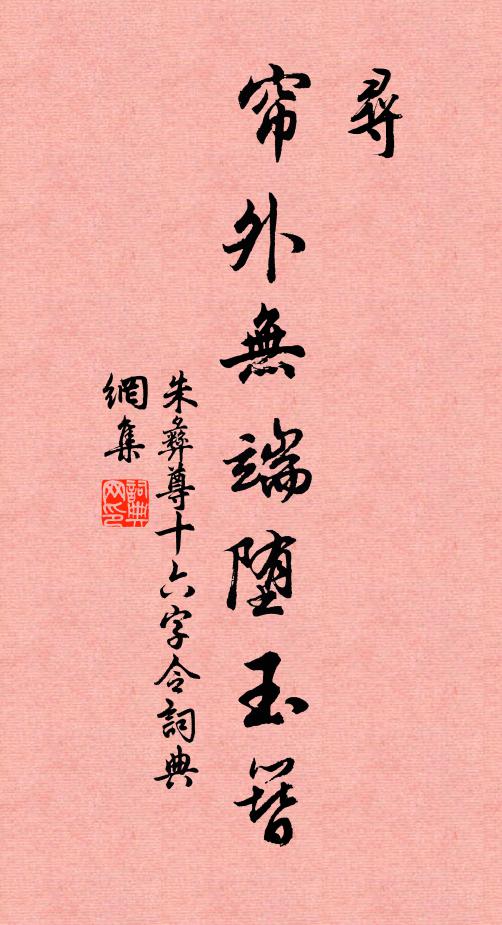 尋
帘外無端堕玉簪
朱彝尊十六字令詞典
網集
詞典
网印